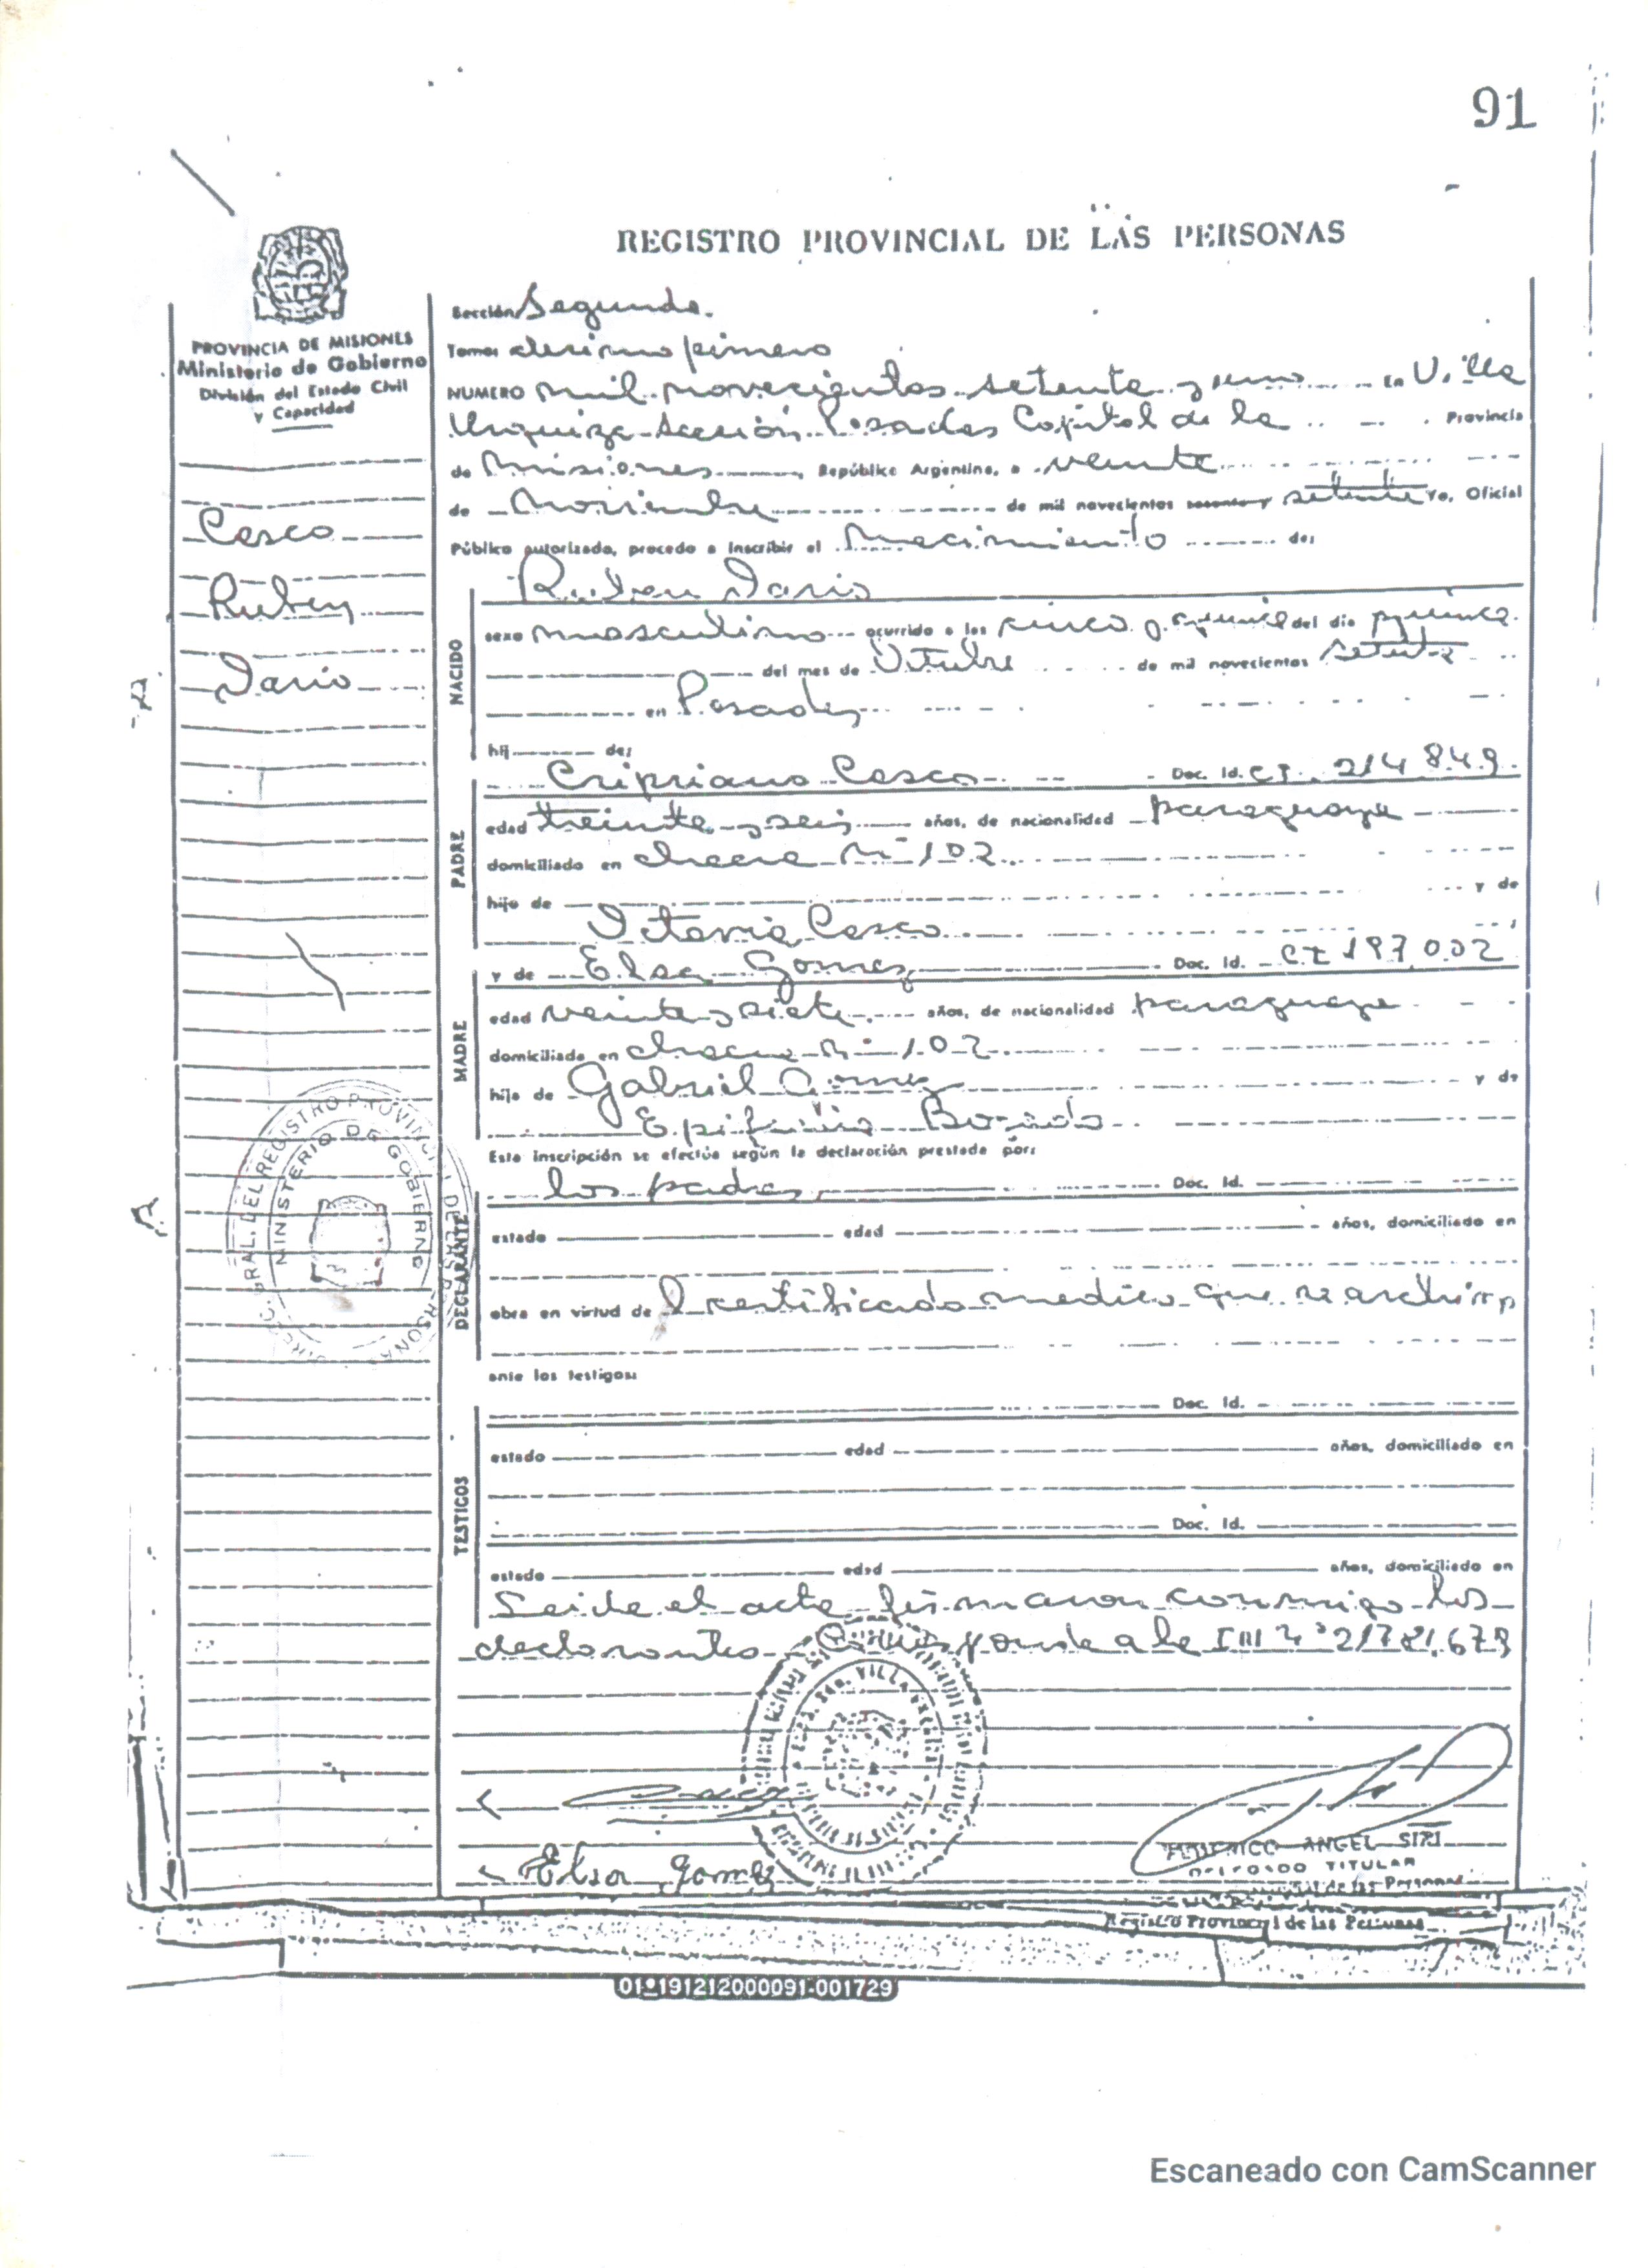 91
REGISTRO PROVINCIAL DE LAS PERSONAS
PROVINCIA DE MISIONES
Ministerio de Gobierno
División del Estado Civil
y Capacidad
Cesco
Ruben
Dario
Sección Segunda.
Tomo: decimo primero
NUMERO mil novecientos setenta y uno en Villa
Urquiza Sección Posadas Capital de la Provincia
de Misiones, República Argentina, a veinte
de Noviembre de mil novecientos sesenta y setenta Yo, Oficial
Público autorizado, procedo a inscribir el Nacimiento de:
NACIDO
Ruben Dario
sexo masculino ocurrido a las cinco y quince del dia quince
del mes de Octubre de mil novecientos setenta
en Posadas
hij de:
PADRE
Cripriano Cesco Doc. Id. CI. 214849
edad treinta y seis años, de nacionalidad paraguaya
domiciliado en chacra Nº 102
hijo de y de
Otavia Cesco
MADRE
y de Elsa Gomez Doc. Id. CI 197,002
edad veinte y siete años, de nacionalidad paraguaya
domiciliada en chacra Nº 102
hija de Gabriel Gomez y de
Epifania
Esta inscripción se efectúa según la declaración prestada por:
DECLARANTE
los padres Doc. Id.
estado edad años, domiciliado en
obra en virtud de certificado medico que se archiva
ante los testigos:
TESTIGOS
Doc. Id.
estado edad años, domiciliado en
Doc. Id.
estado edad años, domiciliado en
Leida el acta firmaron conmigo los
declarantes Corresponde a la Nº 21781,679
DIREC. GRAL. DEL REGISTRO PROVINCIAL DE LAS PERSONAS
MINISTERIO DE GOBIERNO
Elsa Gomez
FEDERICO ANGEL SIRI
TITULAR
Registro Provincial de las Personas
01º191212000091-001729
Escaneado con CamScanner